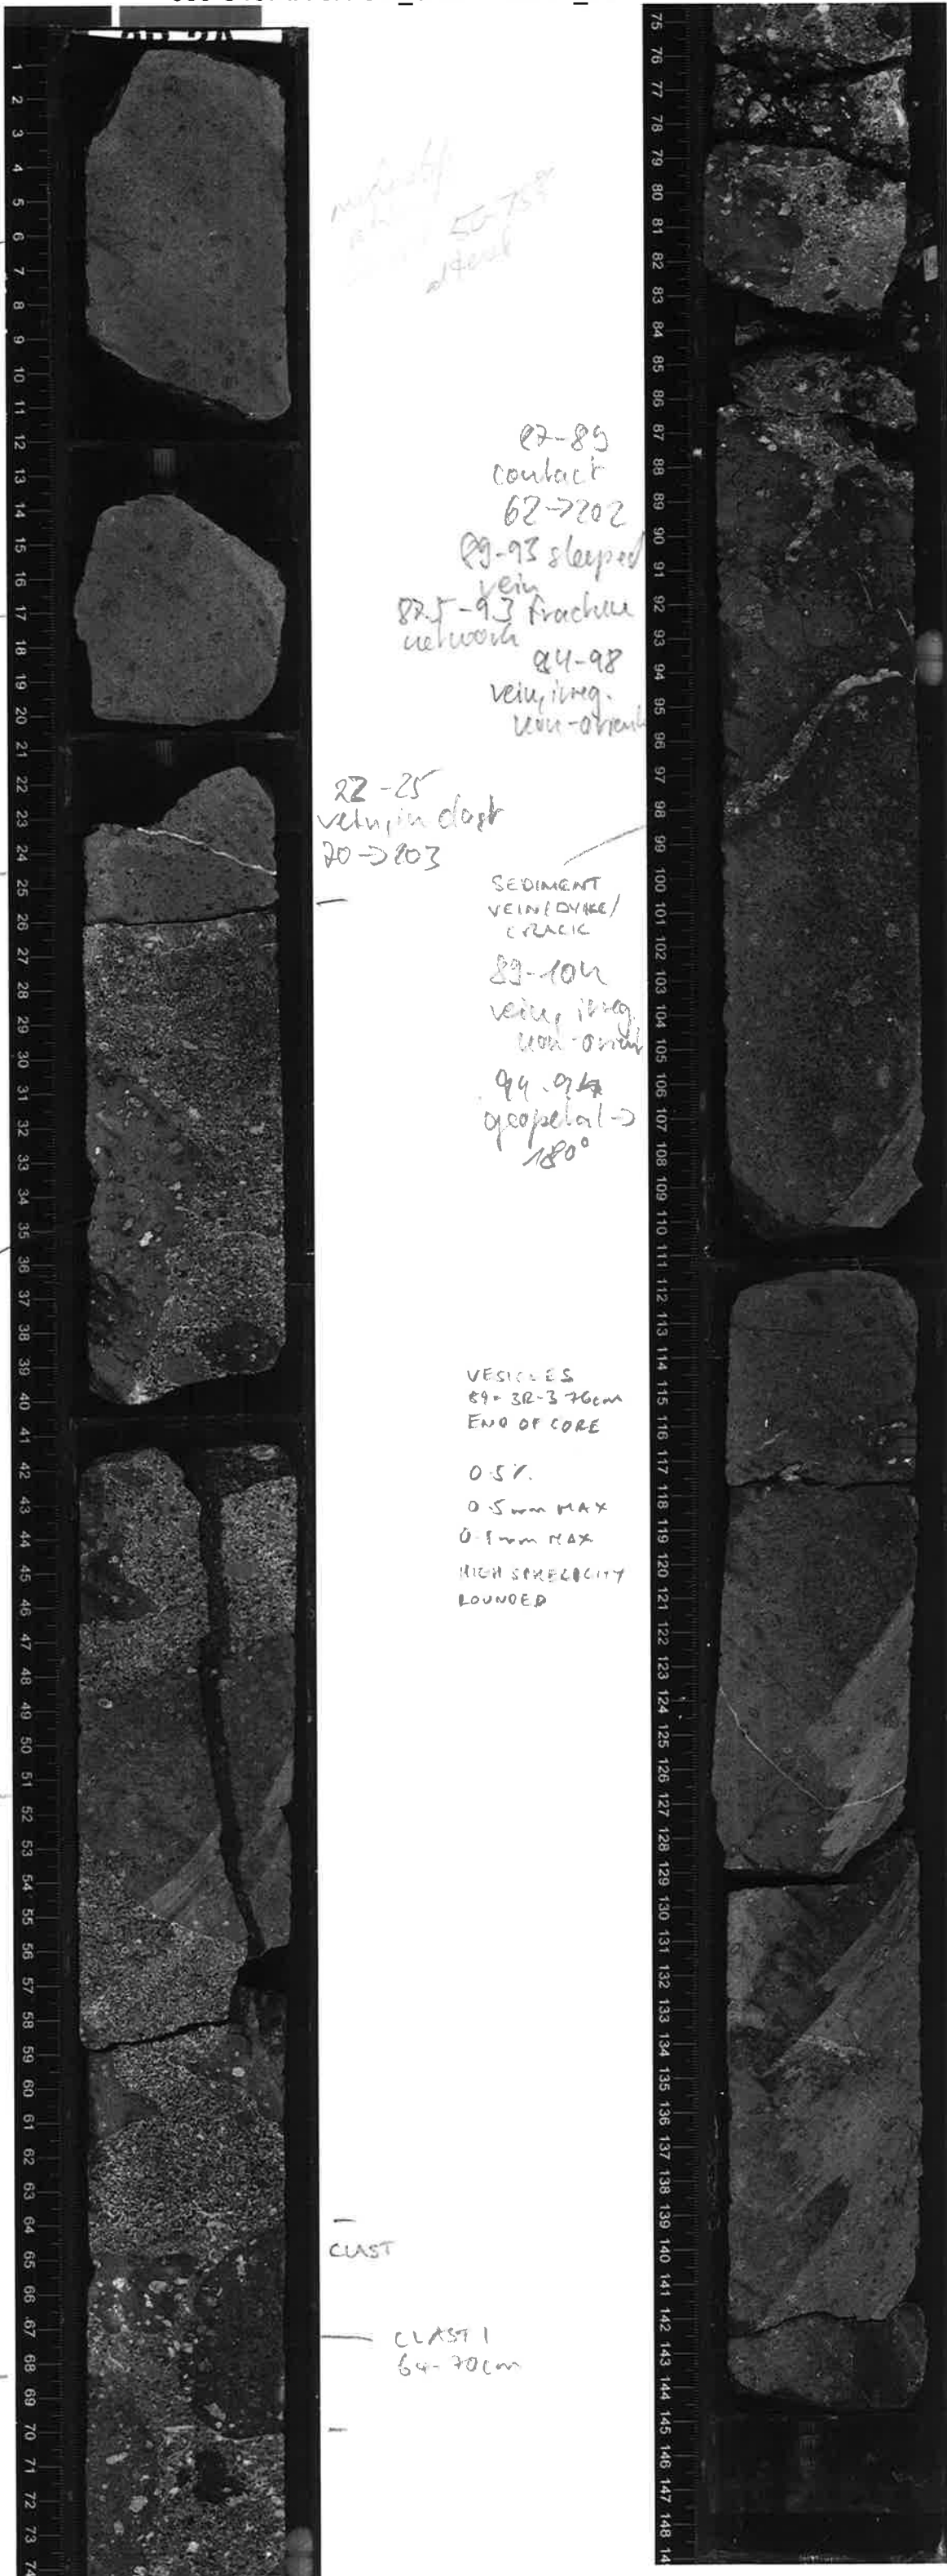 1
2
3
4
5
6
7
8
9
10
11
12
13
14
15
16
17
18
19
20
21
22
23
24
25
26
27
28
29
30
31
32
33
34
35
36
37
38
39
40
41
42
43
44
45
46
47
48
49
50
51
52
53
54
55
56
57
58
59
60
61
62
63
64
65
66
67
68
69
70
71
72
73
74
50-75%
altered
22-25
vein, in clast
70->203
CLAST
CLAST 1
64-70cm
87-89
contact
62->202
89-93 steeped
vein
87.5-93 fracture
network
94-98
vein, irreg.
non-orient
SEDIMENT
VEIN/DYKE/
CRACK
89-104
vein, irreg
non-orient
94-94
geopetal->
180°
VESICLES
89-3R-3 76cm
END OF CORE
0.5%
0.5mm MAX
0.1mm MAX
HIGH SPHERICITY
ROUNDED
75
76
77
78
79
80
81
82
83
84
85
86
87
88
89
90
91
92
93
94
95
96
97
98
99
100
101
102
103
104
105
106
107
108
109
110
111
112
113
114
115
116
117
118
119
120
121
122
123
124
125
126
127
128
129
130
131
132
133
134
135
136
137
138
139
140
141
142
143
144
145
146
147
148
14